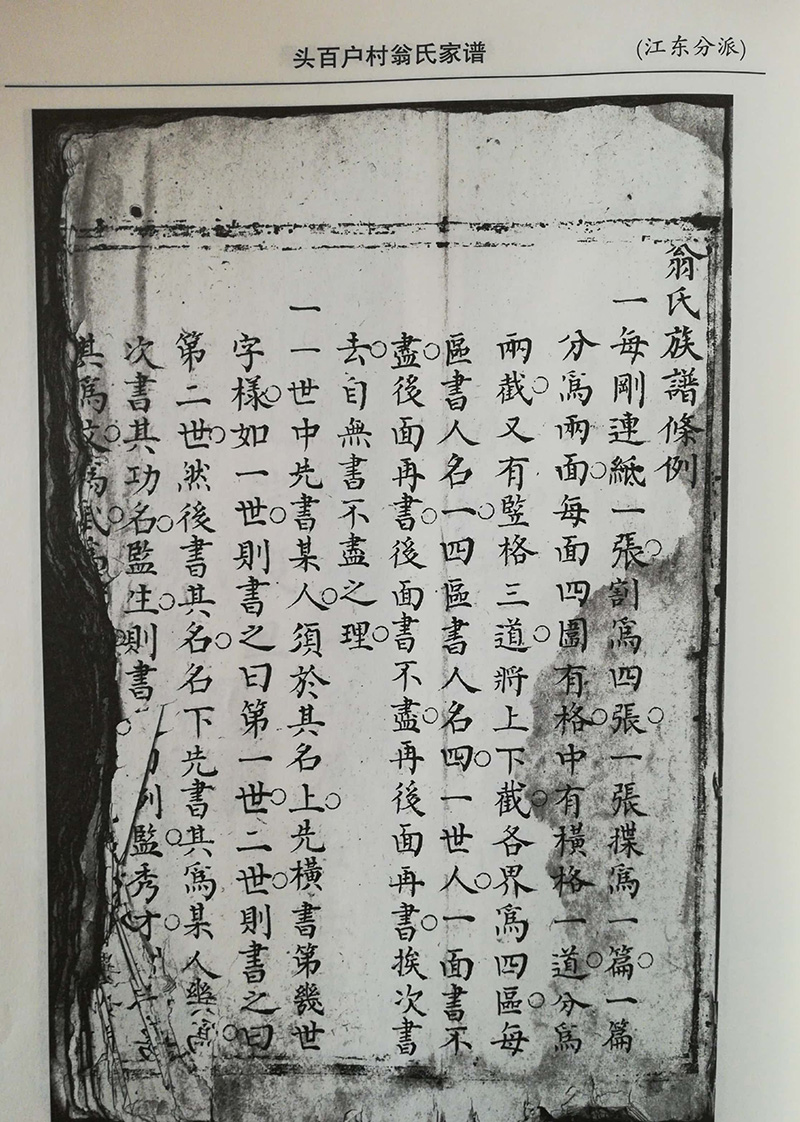 头百户村翁氏家谱
(江东分派)
翁氏族譜條例
一每剛連紙一張割為四張一張揲為一篇一篇
分為兩面每面四圍有格中有橫格一道分為
兩截又有竪格三道將上下截各界為四區每
區書人名一四區書人名四一世人一面書不
盡後面再書後面書不盡再後面再書挨次書
去自無書不盡之理
一一世中先書某人須於其名上先橫書第幾世
字樣如一世則書之曰第一世二世則書之曰
第二世然後書其名名下先書其為某人幾為
次書其功名監生則書例監秀才
其為文為武為